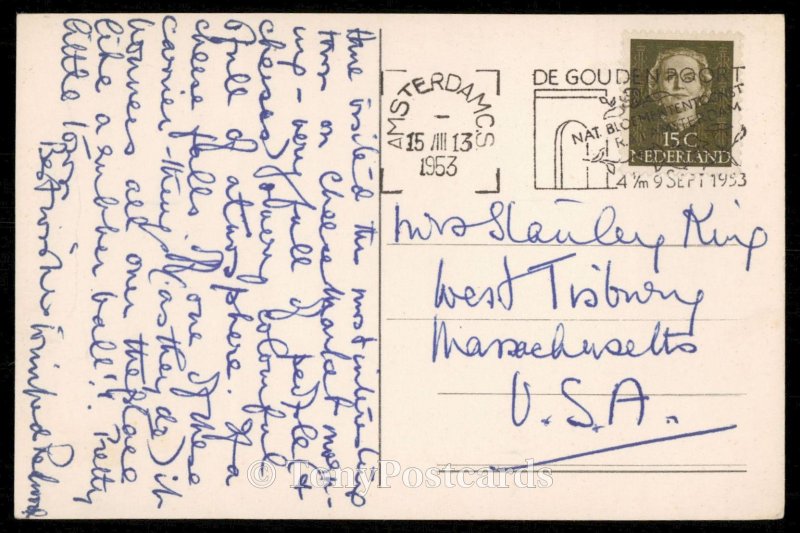 Have visited this most interesting
town on cheese market morn-
ing – very full of people (&
cheeses) & very colourful
& full of atmosphere. If a
cheese falls off one of these
carriers – they (as they do) it
bounces all over the place
like a rubber ball!! Pretty
little town.
Best wishes Winifred
AMSTERDAM C.S
15 VIII 13
1953
DE GOUDEN POORT
NAT. BLOEMENTENTOONST
4 t/m 9 SEPT 1953
15 C
NEDERLAND
Mrs Stanley King
West Tisbury
Massachusetts
U.S.A.
© TonyPostcards